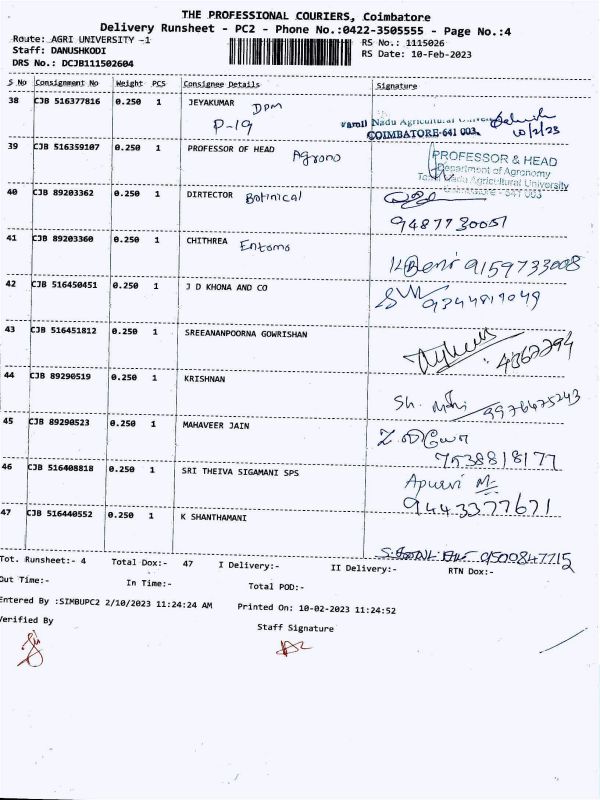 THE PROFESSIONAL COURIERS, Coimbatore
Delivery Runsheet - PC2 - Phone No.:0422-3505555 - Page No.:4
Route: AGRI UNIVERSITY -1
RS No.: 1115026
Staff: DANUSHKODI
RS Date: 10-Feb-2023
DRS No.: DCJB111502604
S No Consignment No Weight PCS Consignee Details Signature
38 CJB 516377816 0.250 1 JEYAKUMAR DPM
P-19
Tamil Nadu Agricultural
COIMBATORE-641 003. 10/2/23
39 CJB 516359107 0.250 1 PROFESSOR OF HEAD Agrono
PROFESSOR & HEAD
Department of Agronomy
Tamil Nadu Agricultural University
Coimbatore - 641 003
40 CJB 89203362 0.250 1 DIRTECTOR Botinical
9487730051
41 CJB 89203360 0.250 1 CHITHREA Entomo
9159733008
42 CJB 516450451 0.250 1 J D KHONA AND CO
9344819049
43 CJB 516451812 0.250 1 SREEANANPOORNA GOWRISHAN
4362294
44 CJB 89290519 0.250 1 KRISHNAN
Sh. 9976475243
45 CJB 89290523 0.250 1 MAHAVEER JAIN
7538818177
46 CJB 516408818 0.250 1 SRI THEIVA SIGAMANI SPS
Apurvi M
9443377671
47 CJB 516440552 0.250 1 K SHANTHAMANI
9500847715
Tot. Runsheet:- 4 Total Dox:- 47 I Delivery:- II Delivery:- RTN Dox:-
Out Time:- In Time:- Total POD:-
Entered By :SIMBUPC2 2/10/2023 11:24:24 AM Printed On: 10-02-2023 11:24:52
Verified By
Staff Signature